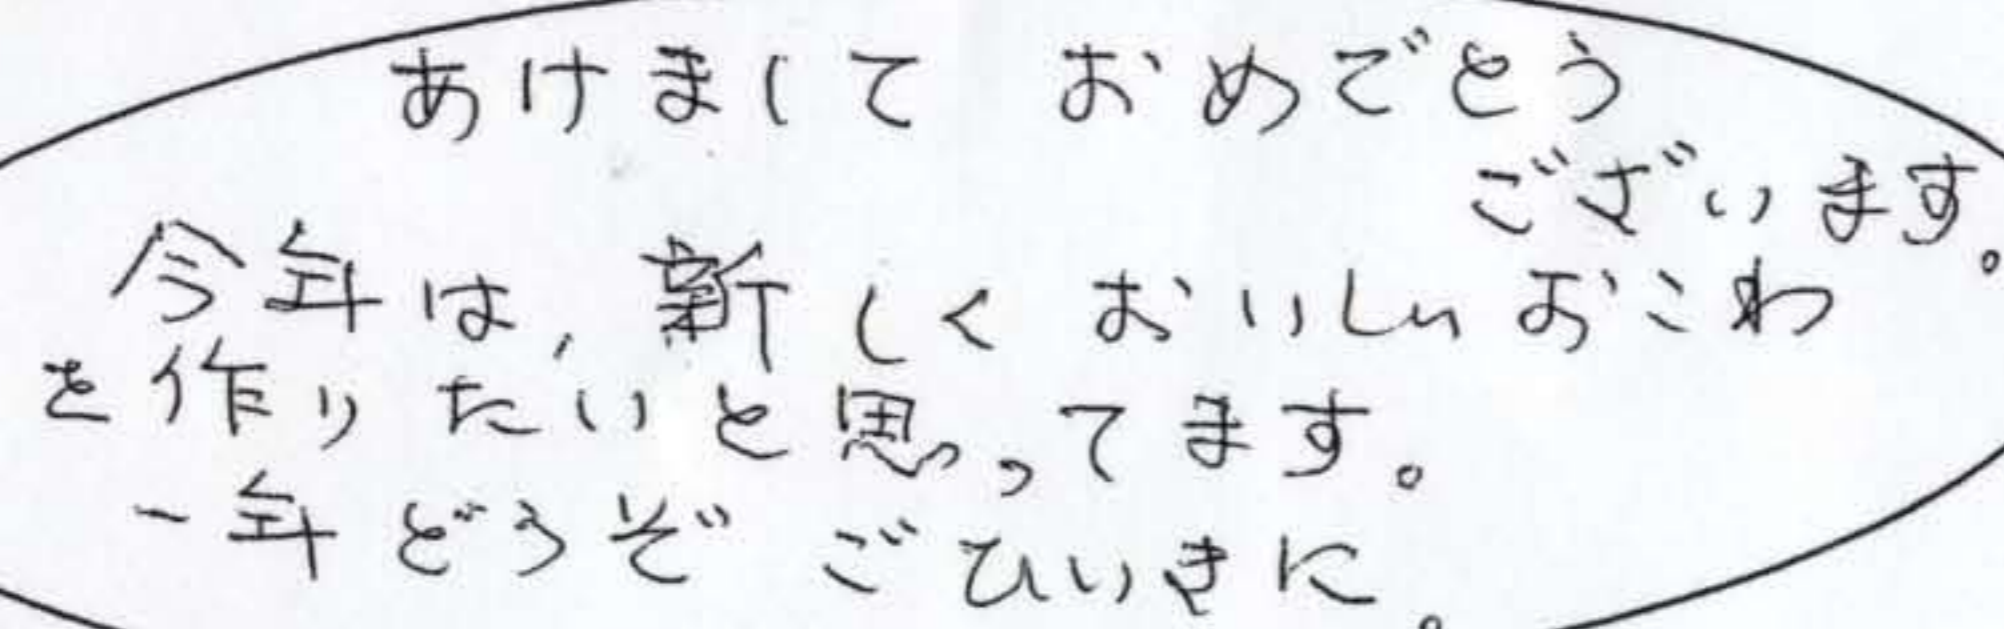 あけまして おめでとう
ございます。
今年は、新しく おいしい おこわ
を作りたいと思ってます。
一年どうぞ ごひいきに。